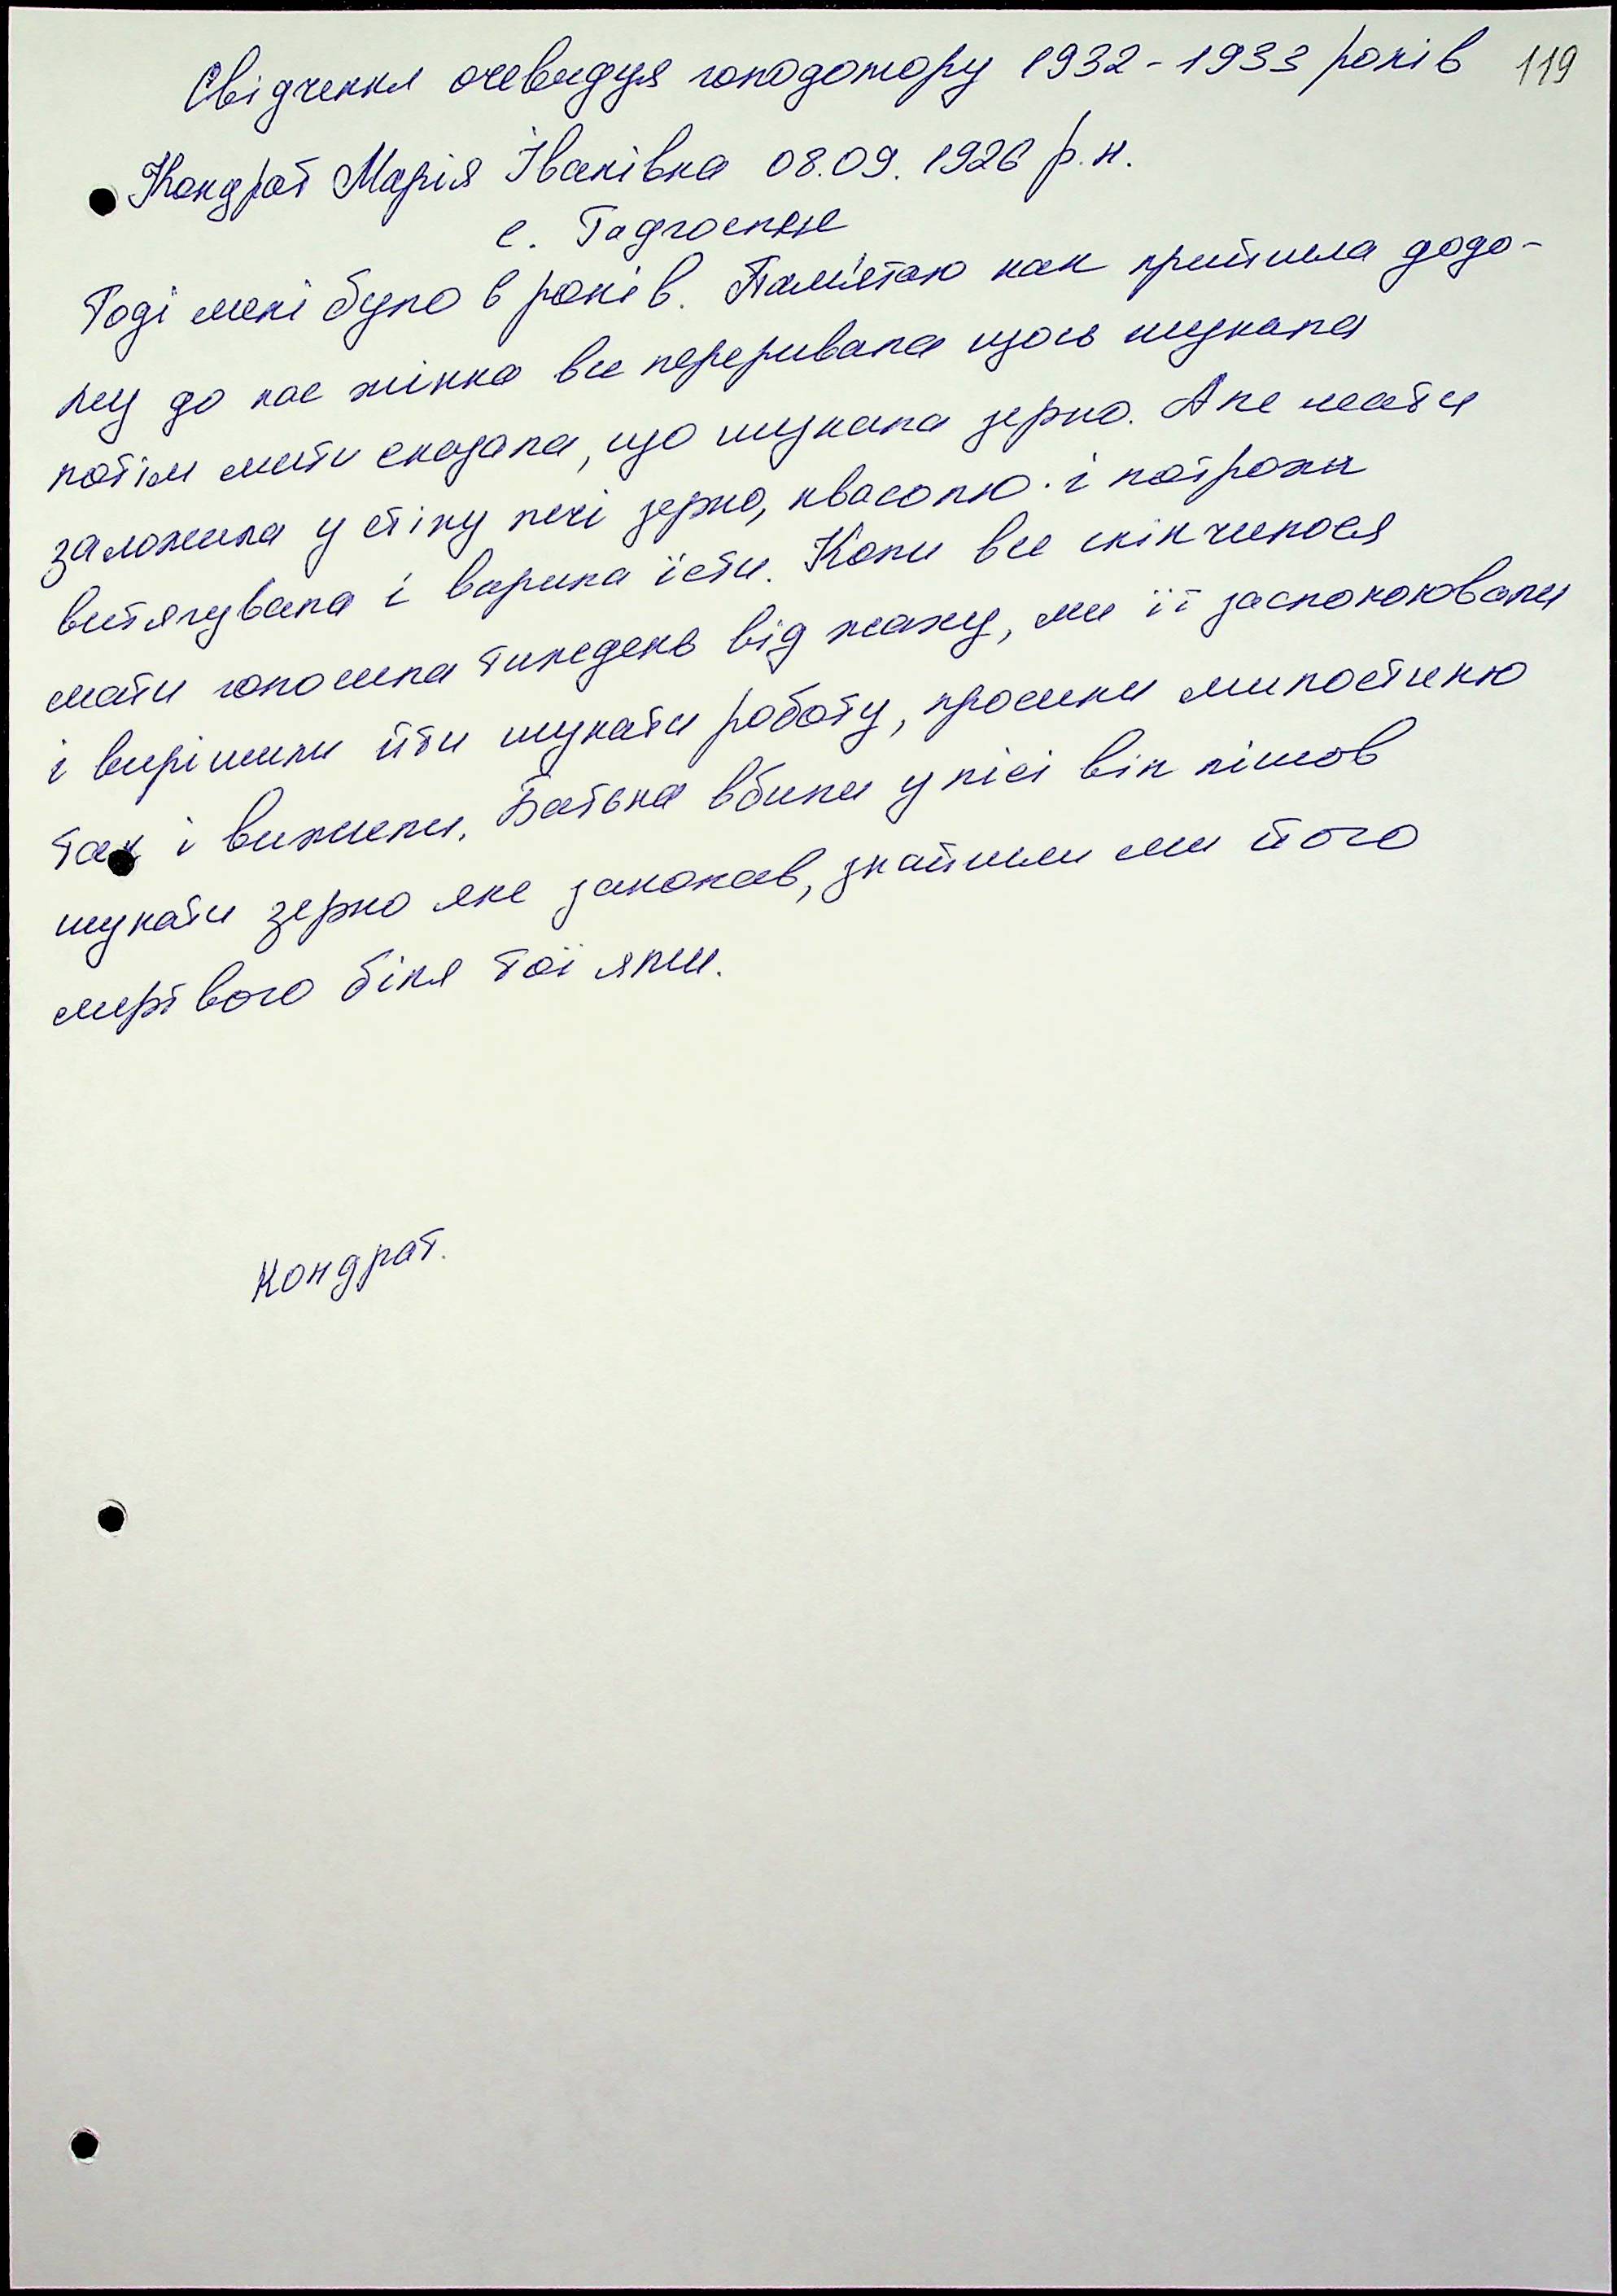 Свідчення очевидця голодомору 1932-1933 років 119
Кондрат Марія Іванівна 08.09.1926 р.н.
с. Радгоспне
Тоді мені було 6 років. Пам'ятаю как прийшла додо-
му до нас жінка все перериваля щось шукала
потім мати сказала, що шукала зерно. Але мати
заложила у стіну печі зерно, квасолю. і потрохи
витягувала і варила їсти. Коли все скінчилося
мати голосила тиждень від жаху, ми її заспокоювали
і вирішили йти шукати роботу, просили милостиню
так і вижили. Батька вбили у лісі він пішов
шукати зерно яке закопав, знайшли ми його
мертвого біля тої ями.
Кондрат.